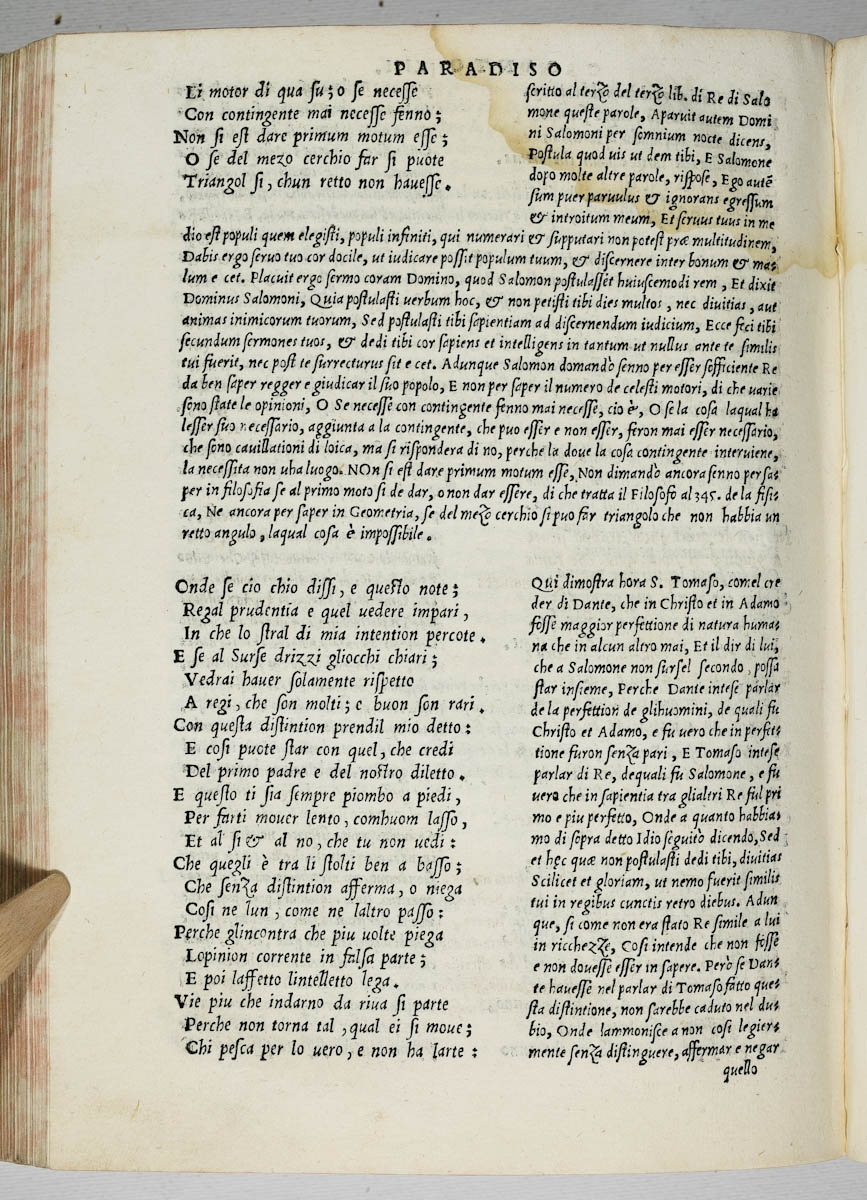 PARADISO
Li motor di qua su; o se necesse
Con contingente mai necesse fenno;
Non si est dare primum motum esse;
O se del mezo cerchio far si puote
Triangol si, chun retto non hauesse.
scritto al terzo del terzo lib. di Re di Salo
mone queste parole, Aparuit autem Domi
ni Salomoni per somnium nocte dicens,
Postula quod uis ut dem tibi, E Salomone
dopo molte altre parole, rispose, Ego autē
sum puer paruulus & ignorans egressum
& introitum meum, Et seruus tuus in me
dio est populi quem elegisti, populi infiniti, qui numerari & supputari non potest præ multitudinem,
Dabis ergo seruo tuo cor docile, ut iudicare possit populum tuum, & discernere inter bonum & ma-
lum e cet. Placuit ergo sermo coram Domino, quod Salomon postulasset huiuscemodi rem, Et dixit
Dominus Salomoni, Quia postulasti uerbum hoc, & non petisti tibi dies multos, nec diuitias, aut
animas inimicorum tuorum, Sed postulasti tibi sapientiam ad discernendum iudicium, Ecce feci tibi
secundum sermones tuos, & dedi tibi cor sapiens et intelligens in tantum ut nullus ante te similis
tui fuerit, nec post te surrecturus sit e cet. Adunque Salomon domandò senno per esser sofficiente Re
da ben saper regger e giudicar il suo popolo, E non per saper il numero de celesti motori, di che uarie
sono state le opinioni, O Se necesse con contingente fenno mai necesse, cio è, O se la cosa laqual ha
lesser suo necessario, aggiunta a la contingente, che puo esser e non esser, feron mai esser necessario,
che sono cauillationi di loica, ma si rispondera di no, perche la doue la cosa contingente interuiene,
la necessita non uha luogo. NOn si est dare primum motum esse, Non dimandò ancora senno per sa-
per in filosofia se al primo moto si de dar, o non dar essere, di che tratta il Filosofo al 345. de la fisi-
ca, Ne ancora per saper in Geometria, se del mezo cerchio si puo far triangolo che non habbia un
retto angulo, laqual cosa è impossibile.
Onde se cio chio dissi, e questo note;
Regal prudentia e quel uedere impari,
In che lo stral di mia intention percote.
E se al Surse drizzi gliocchi chiari;
Vedrai hauer solamente rispetto
A regi, che son molti; e buon son rari.
Con questa distintion prendil mio detto:
E cosi puote star con quel, che credi
Del primo padre e del nostro diletto.
E questo ti sia sempre piombo a piedi,
Per farti mouer lento, comhuom lasso,
Et al si & al no, che tu non uedi:
Che quegli è tra li stolti ben a basso;
Che senza distintion afferma, o niega
Cosi ne lun, come ne laltro passo:
Perche glincontra che piu uolte piega
Lopinion corrente in falsa parte;
E poi laffetto lintelletto lega.
Vie piu che indarno da riua si parte
Perche non torna tal, qual ei si moue;
Chi pesca per lo uero, e non ha larte:
Qui dimostra hora S. Tomaso, comel cre
der di Dante, che in Christo et in Adamo
fosse maggior perfettione di natura huma-
na che in alcun altro mai, Et il dir di lui,
che a Salomone non sursel secondo, possa
star insieme, Perche Dante intese parlar
de la perfettion de glihuomini, de quali fu
Christo et Adamo, e fu uero che in perfet-
tione furon senza pari, E Tomaso intese
parlar di Re, dequali fu Salomone, e fu
uero che in sapientia tra glialtri Re ful pri
mo e piu perfetto, Onde a quanto habbia-
mo di sopra detto Idio seguitò dicendo, Sed
et hęc quæ non postulasti dedi tibi, diuitias
Scilicet et gloriam, ut nemo fuerit similis
tui in regibus cunctis retro diebus. Adun
que, si come non era stato Re simile a lui
in ricchezze, Cosi intende che non fosse
e non douesse esser in sapere. Però se Dan-
te hauesse nel parlar di Tomaso fatto que-
sta distintione, non sarebbe caduto nel du-
bio, Onde lammonisce a non cosi legier-
mente senza distinguere, affermar e negar
quello